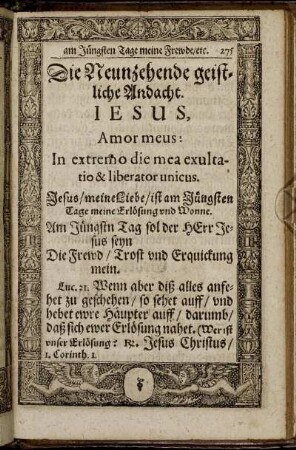 am Jüngsten Tage meine Frewde/etc. 275
Die Neunzehende geist-
liche Andacht.
IESUS,
Amor meus:
In extremo die mea exulta-
tio & liberator unicus.
Jesus/meine Liebe/ist am Jüngsten
Tage meine Erlösung vnd Wonne.
Am Jüngstn Tag sol der HErr Je-
sus seyn
Die Frewd / Trost vnd Erquickung
mein.
Luc. 21. Wenn aber diß alles anfe-
het zu geschehen / so sehet auff / vnd
hebet ewre Häupter auff / darumb /
daß sich ewer Erlösung nahet. (Wer ist
vnser Erlösung? R. Jesus Christus /
1. Corinth. 1.